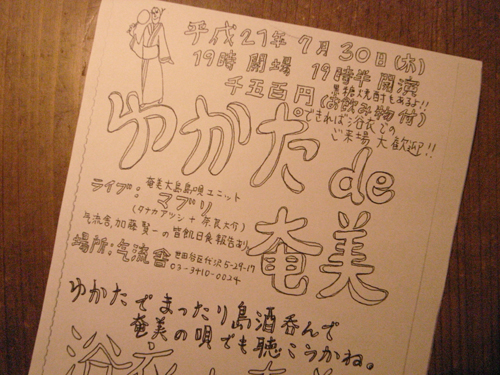 平成21年7月30日(木)
19時開場 19時半開演
千五百円(お飲み物付)
黒糖焼酎もあるよ!!
できれば浴衣での
ご来場大歓迎!!
ゆかた de
奄美
ライブ:奄美大島島唄ユニット
マブリ
(タナカアツシ+
気流舎,加藤賢一の皆既日食報告あり
場所:気流舎 世田谷区代沢5-29-17
03-3410-0024
ゆかたでまったり島酒呑んで
奄美の唄でも聴こうかね。
浴衣